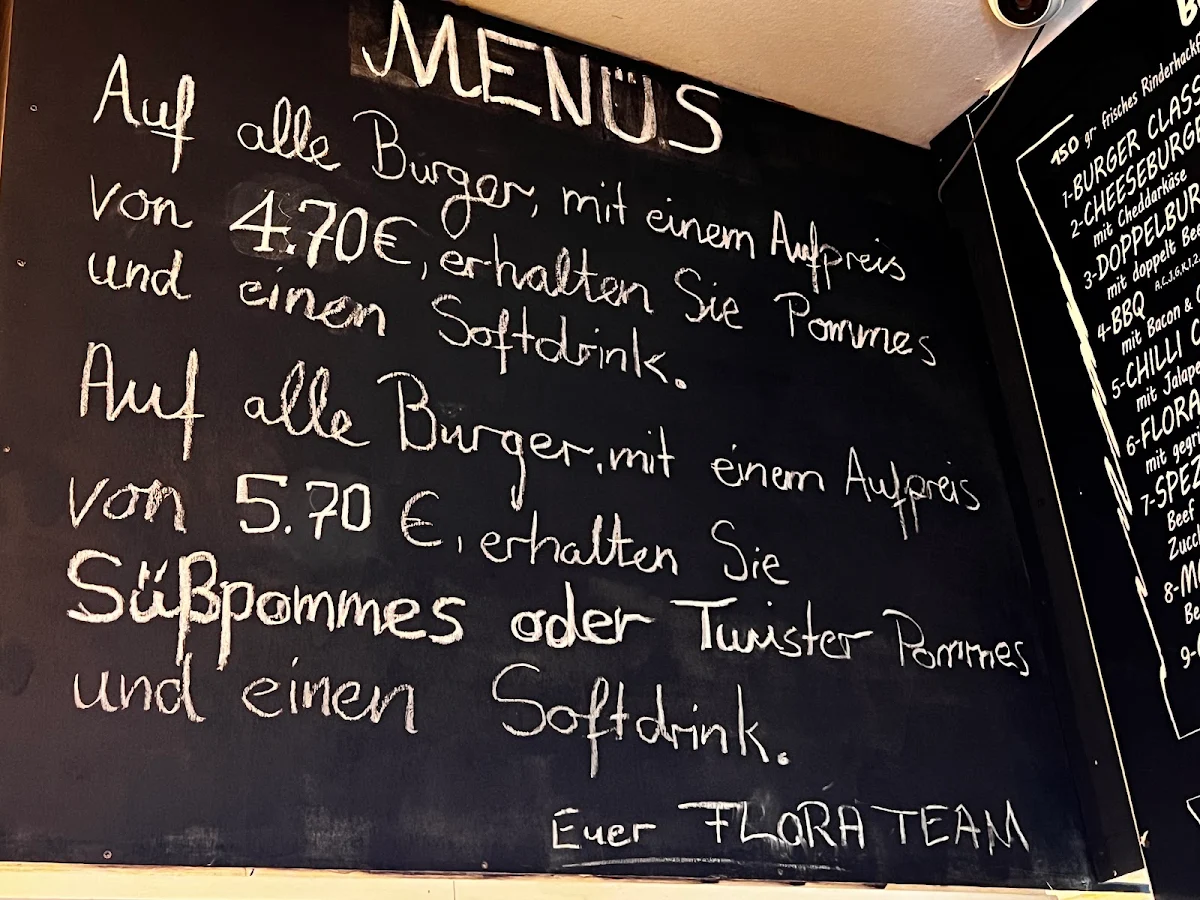 MENÜS
Auf alle Burger, mit einem Aufpreis
von 4.70€, erhalten Sie Pommes
und einen Softdrink.
Auf alle Burger, mit einem Aufpreis
von 5.70 €, erhalten Sie
Süßpommes oder Twister Pommes
und einen Softdrink.
Euer FLORA TEAM
150 gr. frisches
1-BURGER
2-CHEESEBURGE
mit Cheddarkäse
3-DOPPELBUR
mit doppelt
4-BBQ
mit Bacon &
5-CHILLI
mit
6-FLORA
mit
7-SPEZ
Beef
8-
9-